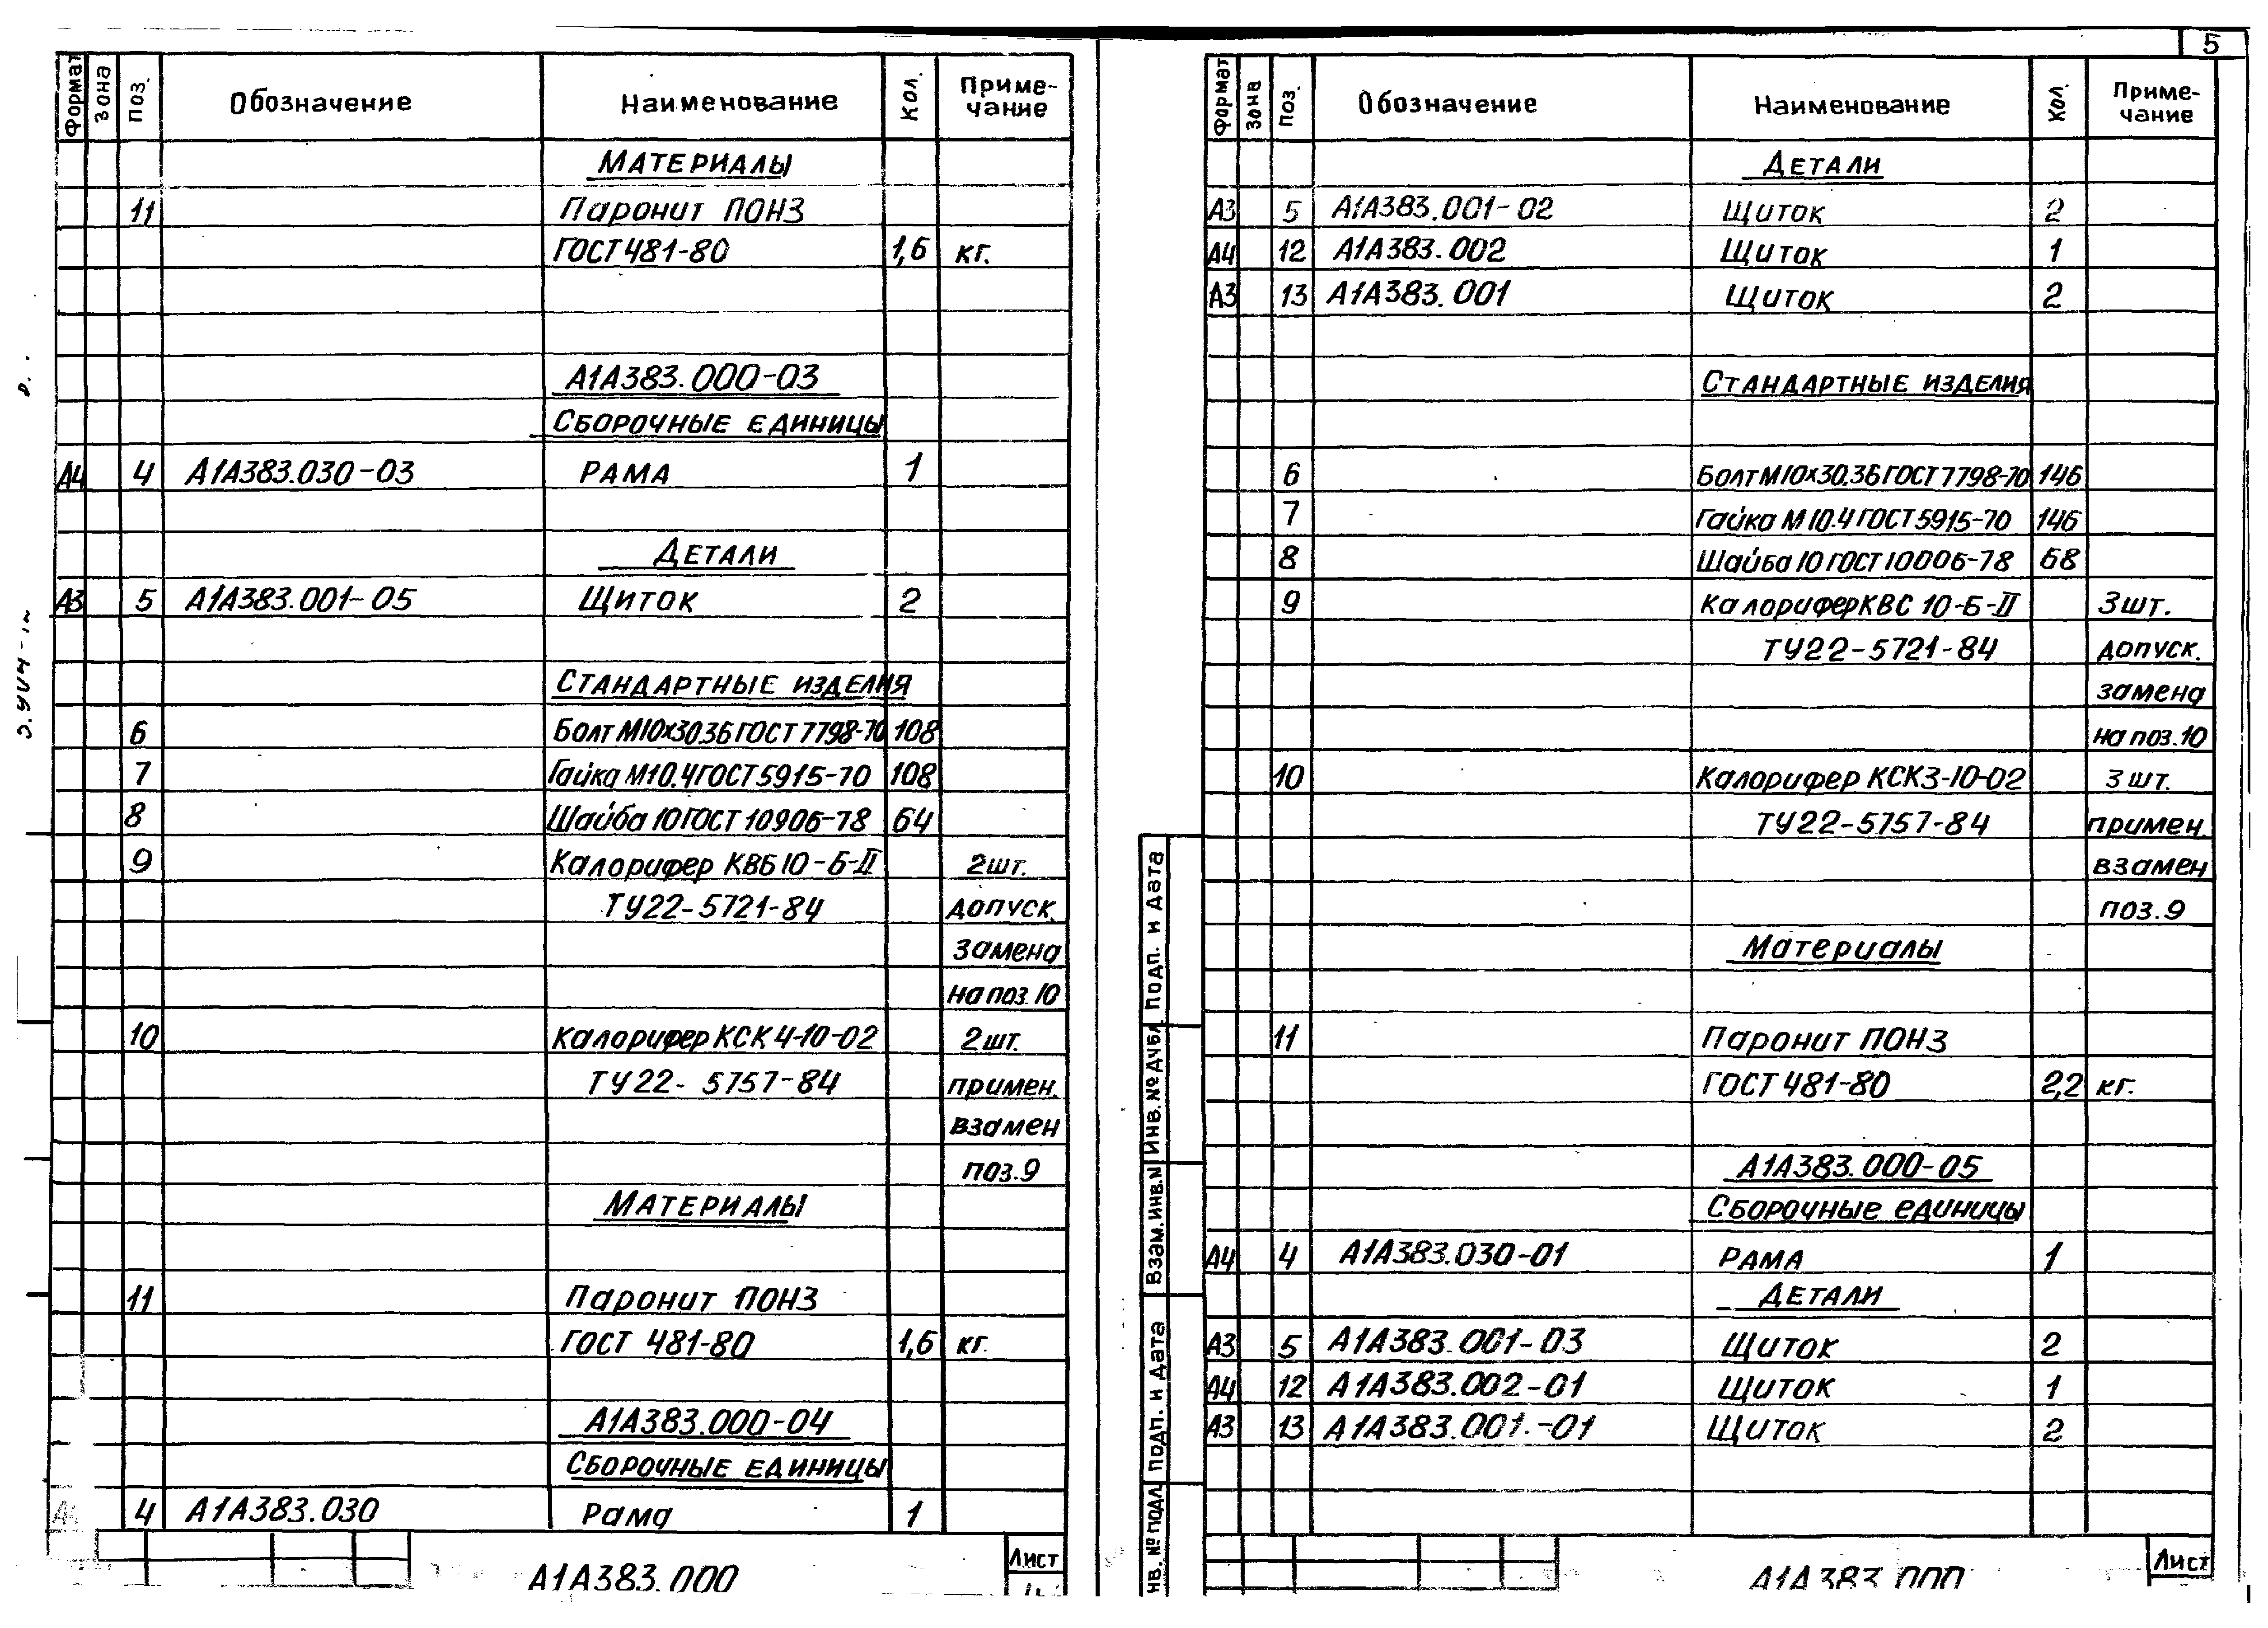 Формат Зона Поз. Обозначение Наименование Кол. Приме-
чание
МАТЕРИАЛЫ
11 Паронит ПОНЗ
ГОСТ 481-80 1,6 кг.
А1А383.000-03
СБОРОЧНЫЕ ЕДИНИЦЫ
А4 4 А1А383.030-03 РАМА 1
ДЕТАЛИ
А3 5 А1А383.001-05 ЩИТОК 2
СТАНДАРТНЫЕ ИЗДЕЛИЯ
6 Болт М10х30.36 ГОСТ 7798-70 108
7 Гайка М10.4 ГОСТ 5915-70 108
8 Шайба 10 ГОСТ 10906-78 64
9 Калорифер КВБ 10-Б-II 2шт.
ТУ22-5721-84 допуск.
замена
на поз.10
10 Калорифер КСК 4-10-02 2шт.
ТУ22-5757-84 примен.
взамен
поз.9
МАТЕРИАЛЫ
11 Паронит ПОНЗ
ГОСТ 481-80 1,6 кг.
А1А383.000-04
СБОРОЧНЫЕ ЕДИНИЦЫ
А4 4 А1А383.030 Рама 1
А1А383.000
Лист
5
Формат Зона Поз. Обозначение Наименование Кол. Приме-
чание
ДЕТАЛИ
А3 5 А1А383.001-02 Щиток 2
А4 12 А1А383.002 Щиток 1
А3 13 А1А383.001 Щиток 2
СТАНДАРТНЫЕ ИЗДЕЛИЯ
6 Болт М10х30.36 ГОСТ 7798-70 146
7 Гайка М10.4 ГОСТ 5915-70 146
8 Шайба 10 ГОСТ 10006-78 68
9 Калорифер КВС 10-Б-II 3шт.
ТУ22-5721-84 допуск.
замена
на поз.10
10 Калорифер КСК3-10-02 3 шт.
ТУ22-5757-84 примен.
взамен
поз.9
Материалы
11 Паронит ПОНЗ
ГОСТ 481-80 2,2 кг.
А1А383.000-05
СБОРОЧНЫЕ ЕДИНИЦЫ
А4 4 А1А383.030-01 РАМА 1
ДЕТАЛИ
А3 5 А1А383.001-03 Щиток 2
А4 12 А1А383.002-01 Щиток 1
А3 13 А1А383.001.-01 Щиток 2
А1А383.000
Лист
Подп. и дата
Инв. № дубл.
Взам. инв. №
Подп. и дата
нв. № подл.